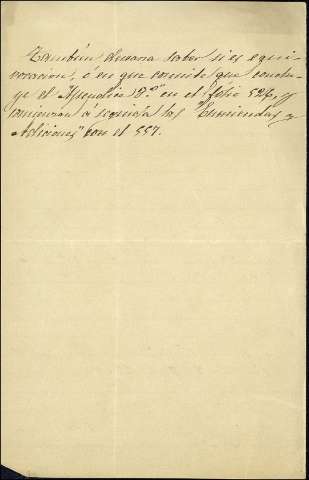 También deseara saber si es equi-
vocacion, ó en que consiste que conclu-
ye el "Apendice 18.º" en el folio 526, y
comienzan á seguida las "Enmiendas y
Adiciones" con el 557.